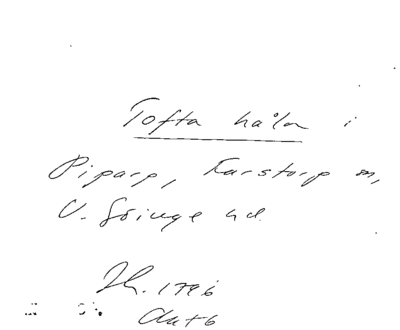 Tofta hålan i
Piparp, Farstorp sn,
V. Göinge hd.
Jh. 1796